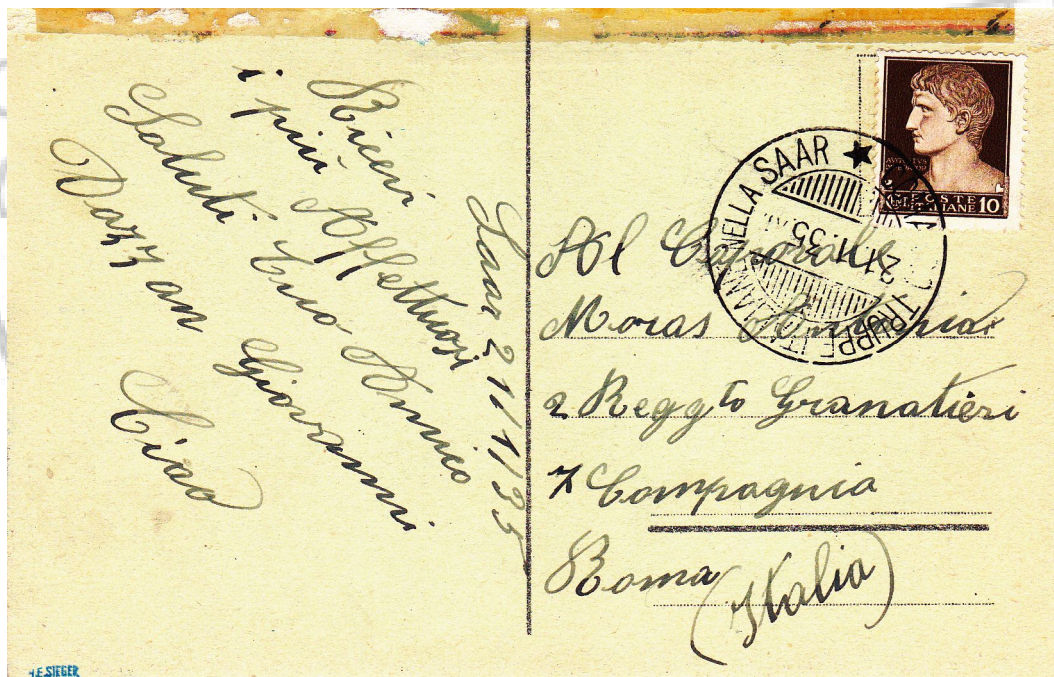 Saar 21/1/35
Ricevi
i più Affettuosi
Saluti tuo Amico
Dazzan Giovanni
Ciao
AUGVSTVS
POSTE
ITALIANE 10
TRUPPE ITALIANE NELLA SAAR ★
21.1.35
Al Caporale
Moras
2 Reggto Granatieri
7 Compagnia
Roma
(Italia)
H.E. SIEGER